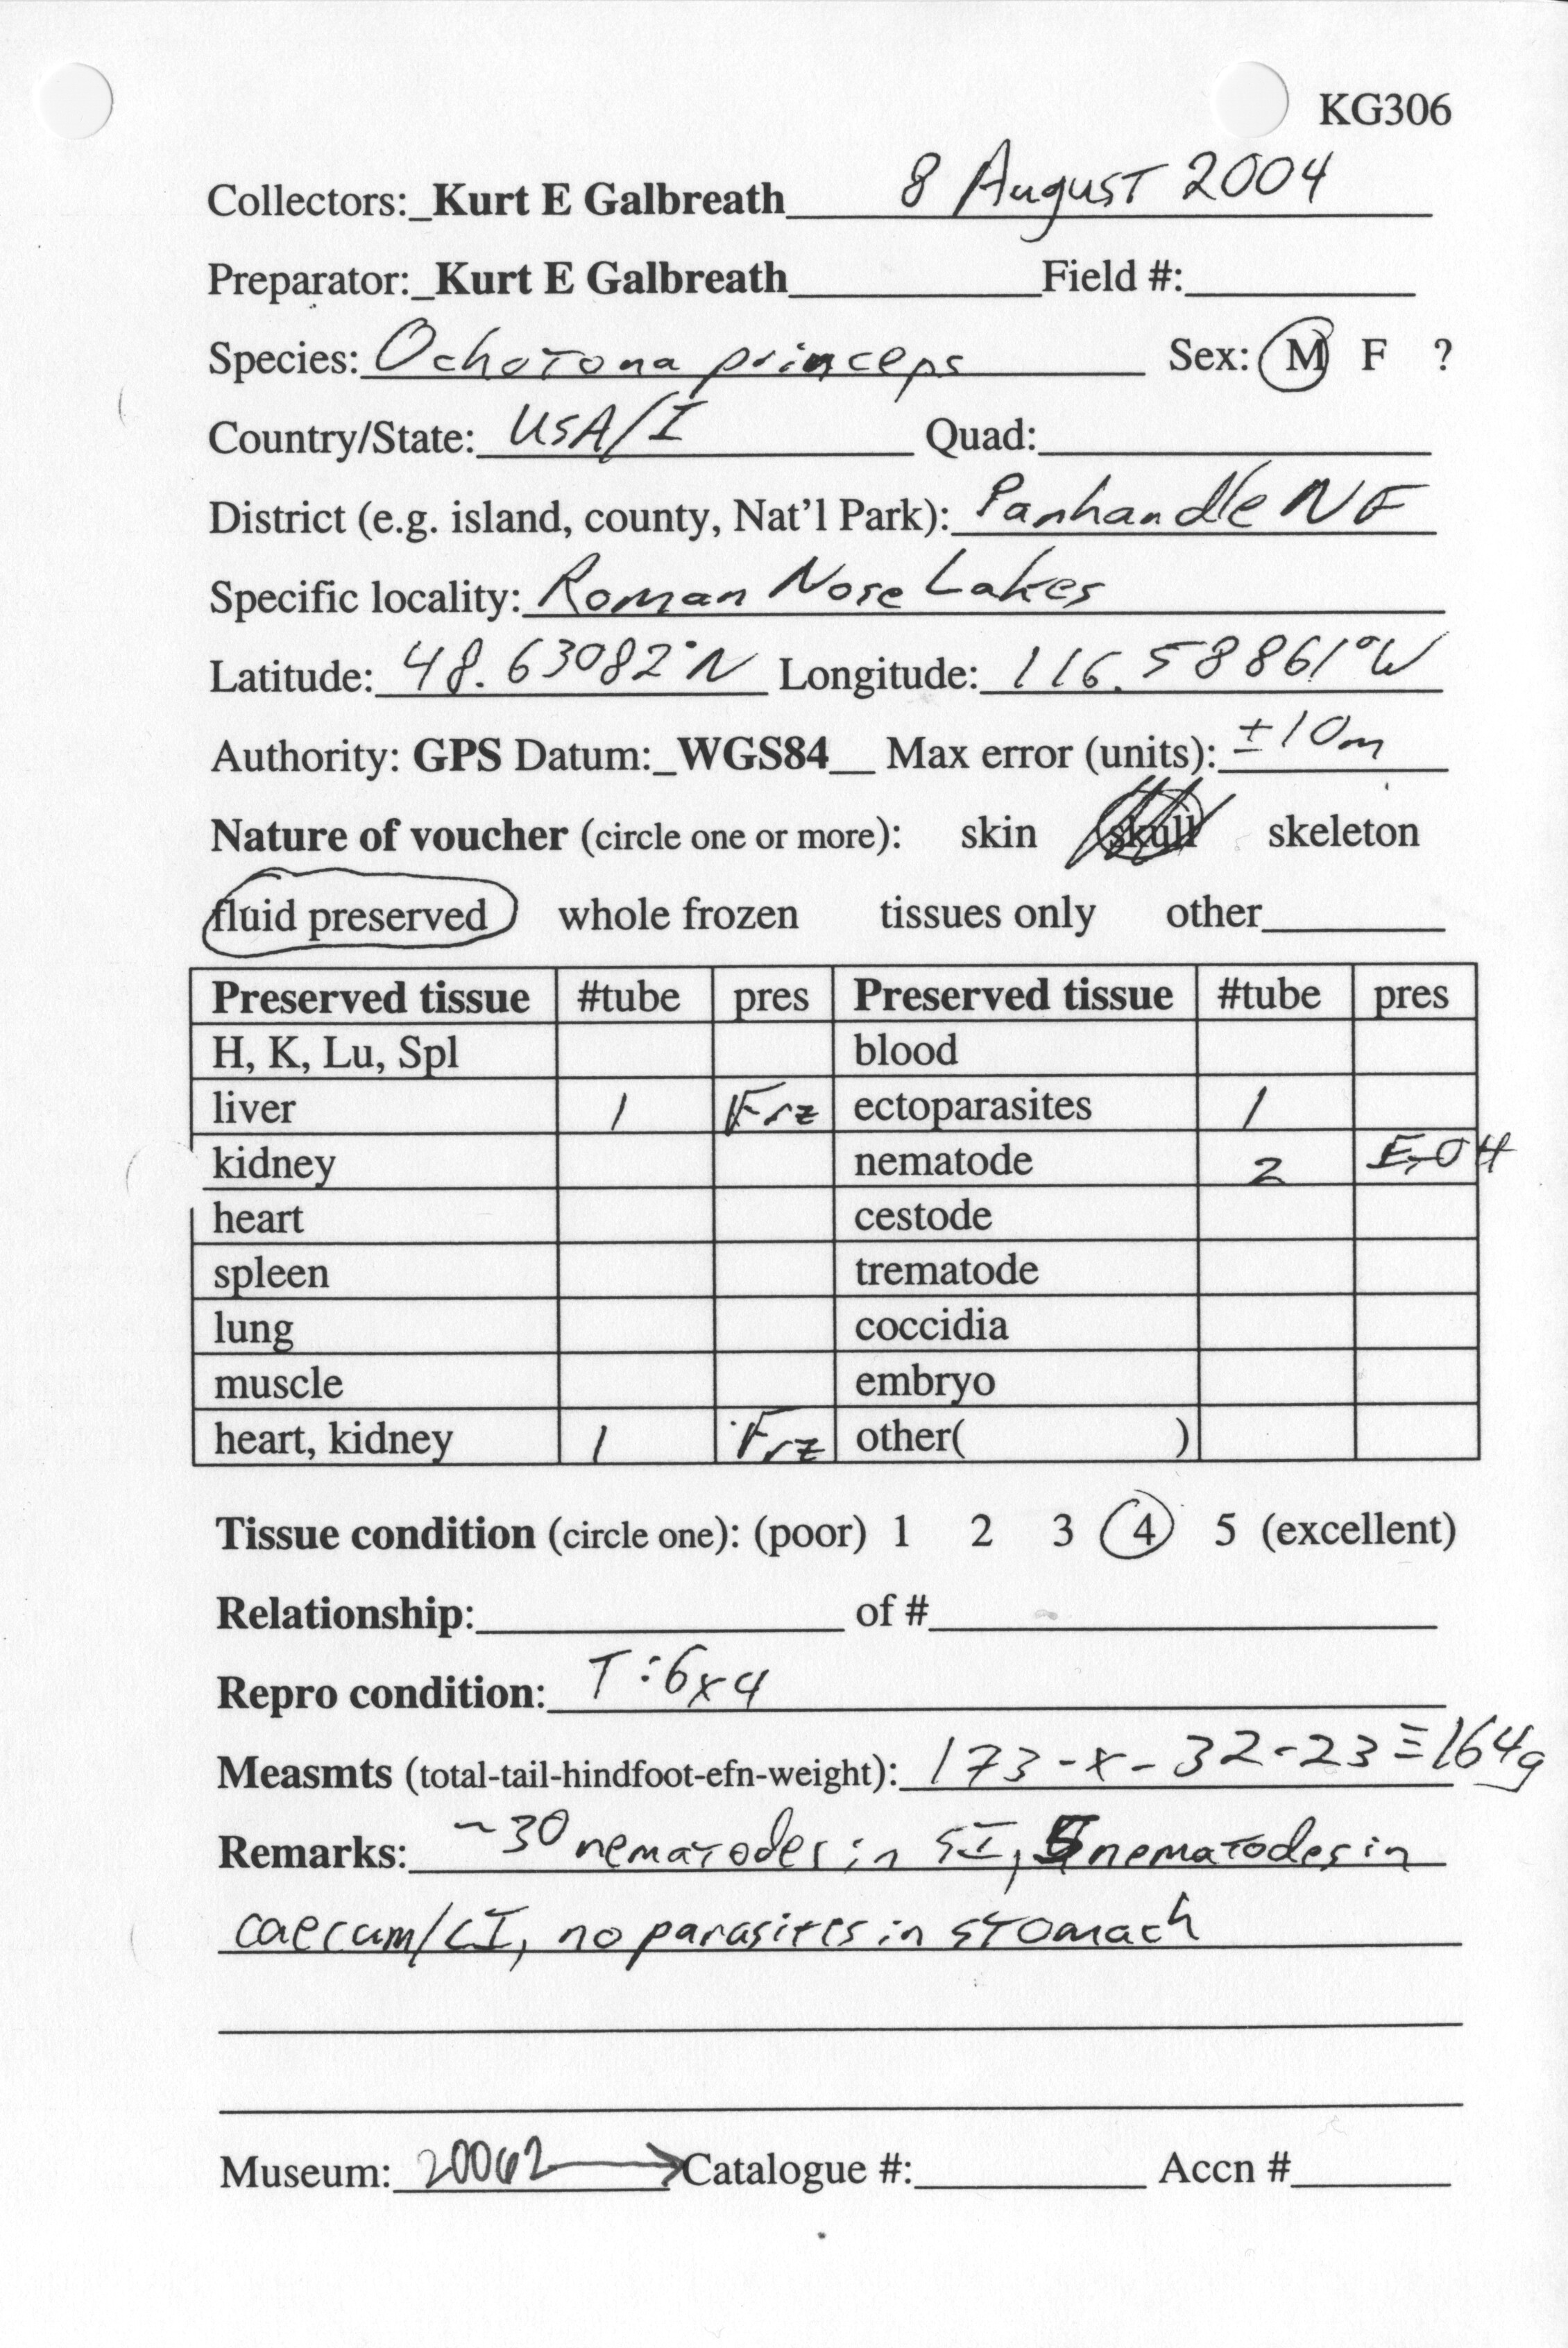 KG306
Collectors:_Kurt E Galbreath 8 August 2004
Preparator:_Kurt E Galbreath Field #:
Species: Ochotona princeps Sex: M F ?
Country/State: USA/I Quad:
District (e.g. island, county, Nat'l Park): Panhandle NF
Specific locality: Roman Nose Lakes
Latitude: 48.63082°N Longitude: 116.58861°W
Authority: GPS Datum:_WGS84__ Max error (units): ±10m
Nature of voucher (circle one or more): skin skull skeleton
fluid preserved whole frozen tissues only other
Preserved tissue #tube pres Preserved tissue #tube pres
H, K, Lu, Spl blood
liver 1 Frz ectoparasites 1
kidney nematode 2 EtOH
heart cestode
spleen trematode
lung coccidia
muscle embryo
heart, kidney 1 Frz other( )
Tissue condition (circle one): (poor) 1 2 3 4 5 (excellent)
Relationship: of #
Repro condition: T:6x4
Measmts (total-tail-hindfoot-efn-weight): 173-x-32-23≡164g
Remarks: ~30 nematodes in SI, 5 nematodes in
caecum/LI, no parasites in stomach
Museum: 20062 → Catalogue #: Accn #